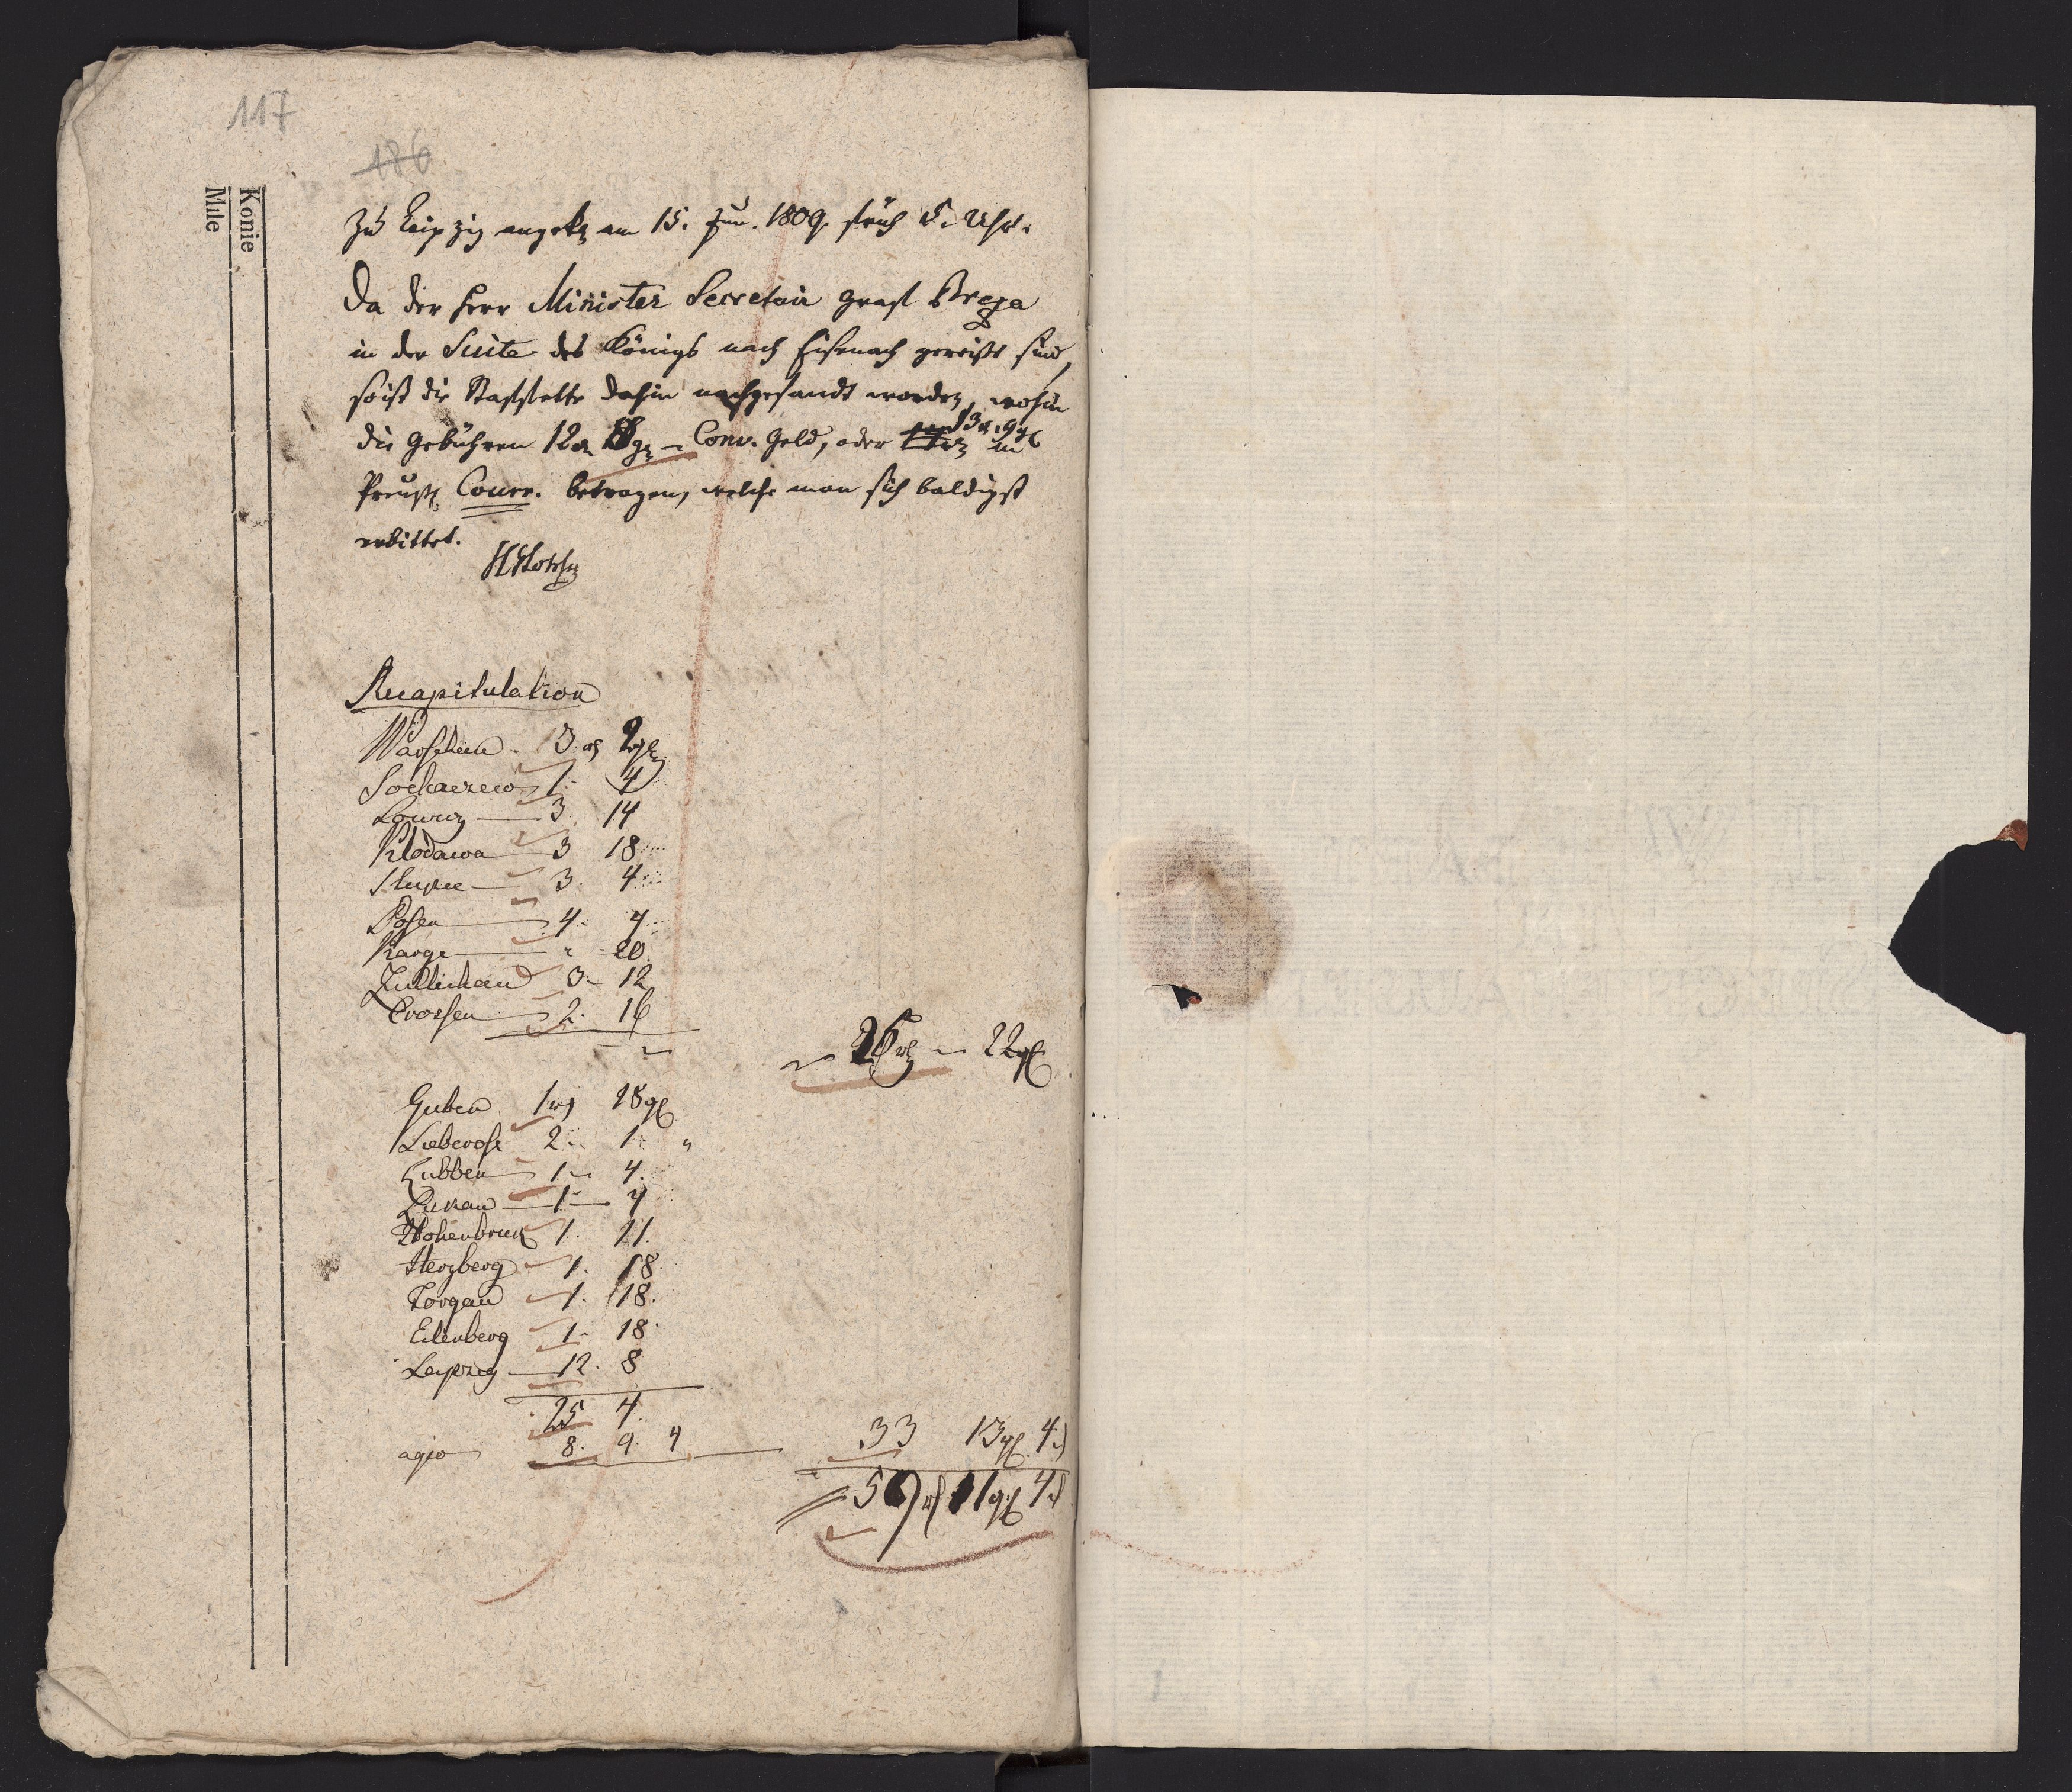 117
186
Konie
Mile
Zu Leipzig angek. am 15. Jun. 1809. früh 5. Uhr.
Da der Herr Minister Secretair Graf Breza
in der Suite des Königs nach Eisenach gereißt sind,
so ist die Staffette dahin nachgesandt worden, wohin
13 rt. 9 gl
die Gebühren 12 rt. 8 gr. Conv. Geld, oder in
Preuß. Cour. betragen, welche man sich baldigst
erbittet.
Recapitulation
Warschau 3. rt 2 gl
Sochaczew 1. 4
Lowicz 3 14
Klodawa 3 18
Slupce 3. 4
Posen 4. 4
Karge " 20
Zullichau 3 12
Crossen 2. 16
26 rt 22 gl
Guben 1 rt 18 gl
Lieberose 2. 1 "
Lubben 1 4.
Luckau 1 4
Hohenbruck 1. 11.
Herzberg 1. 18
Torgau 1. 18.
Eilenberg 1. 18
Leipzig 12. 8
25 4
agio 8. 9. 4 33 13 gl 4 d
59 rt 11 gl 4 d